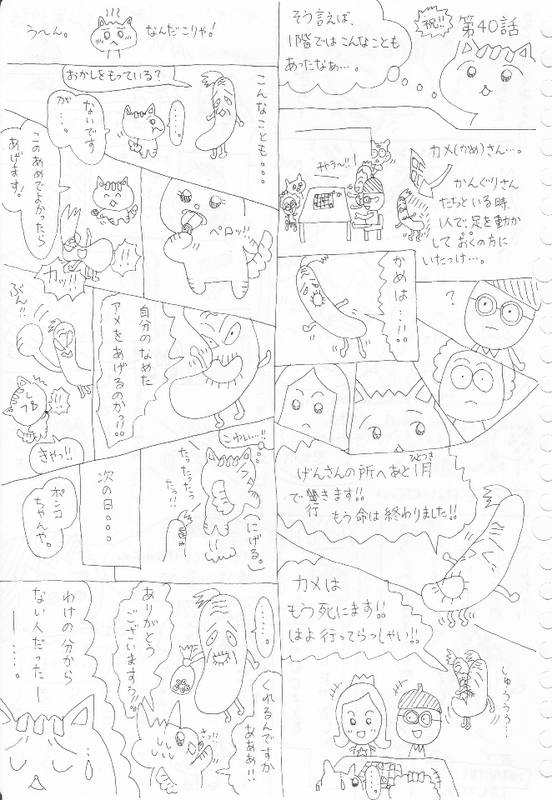 第40話
祝!!
そう言えば、
1階ではこんなことも
あったなぁ…。
カメ(かめ)さん…。
かんぐりさん
たちといる時、
1人で、足を動か
して おくの方に
いたっけ…。
かめは…!!
?
げんさんの所へあと1月
ひとつき
で行きます!!
もう命は終わりました!!
カメは
もう死にます!!
はよ 行ってらっしゃい!!
しゅううう…
う〜ん。
なんだこりゃ!
こんなことも…
おかしをもっている?
…。
ないです
が…。
このあめでよかったら
あげます!
ペロッ…
!!
カッ!!
自分のなめた
アメをあげるのかっ!!
ぶん!!
!!
きゃっ!!
こわい…!!
たったったったっ!!
にげる。
次の日…
ポンコ
ちゃんや。
……。
くれるんですか
ぁぁぁ!!
さっ!!
ありがとう
ございますぅ!!
わけの分から
ない人だったー
ー…。